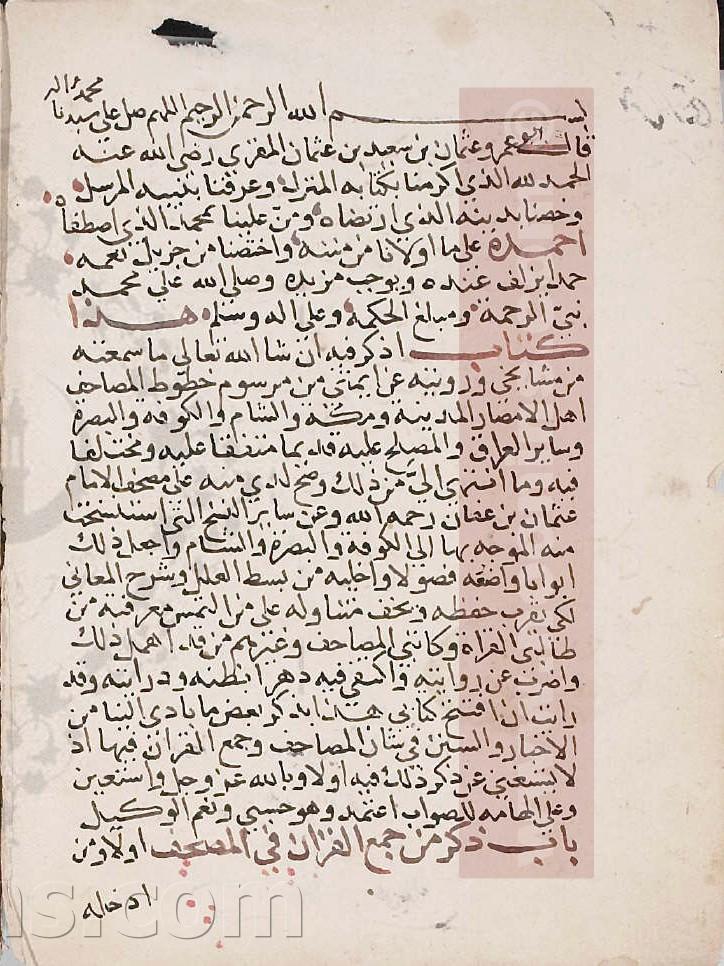 محمد واله
بسم الله الرحمن الرحيم اللهم صل على سيدنا
قال ابو عمرو عثمان بن سعيد بن عثمان المقري رضي الله عنه
الحمد لله الذي اكرمنا بكتابه المنزل وعرفنا بنبيه المرسل
وخصنا بدينه الذي ارتضاه ومن علينا بمحمد الذي اصطفاه
احمده على ما اولانا من مننه واختصنا من جزيل نعمه
حمدا يزلف عنده ويوجب مزيده وصلى الله على محمد
نبي الرحمة ومبالغ الحكمة وعلى اله وسلم هذا
كتاب اذكر فيه ان شا الله تعالى ما سمعته
من مشايخي ورويته عن ايمتي من مرسوم خطوط المصاحف
اهل الامصار المدينة ومكة والشام والكوفة والبصرة
وساير العراق والمصطلح عليه قديما متفقا عليه ومختلفا
فيه وما انتهى الي من ذلك وضح لدي منه على مصحف الامام
عثمان بن عفان رحمه الله وعن ساير النسخ التي استنسخت
منه الموجه بها الى الكوفة والبصرة والشام واجعل ذلك
ابوابا واضعه فصولا واخليه من بسط العلل وشرح المعاني
لكي يقرب حفظه ويخف متناوله على من التمس معرفته من
طالبي القراة وكاتبي المصاحف وغيرهم من قد اهمل ذلك
واضرب عن روايته واكتفي فيه دهرا بظنه ودرايته وقد
رايت ان افتتح كتابي هذا بذكر بعض ما بادي الينا من
الاخبار والسنن في شان المصاحف وجمع القران فيها اذ
لا يسعني عن ذكر ذلك فيه اولا وبالله عز وجل واستعين
وعلى الهامه للصواب اعتمد وهو حسبي ونعم الوكيل
باب ذكر من جمع القران في المصحف اولا ومن
ادخله
ns.com